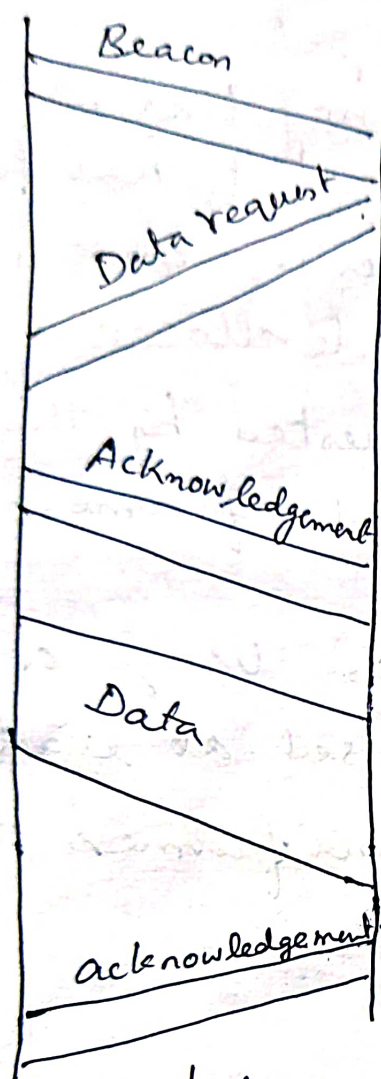 Beacon
Data request
Acknowledgement
Data
acknowledgement